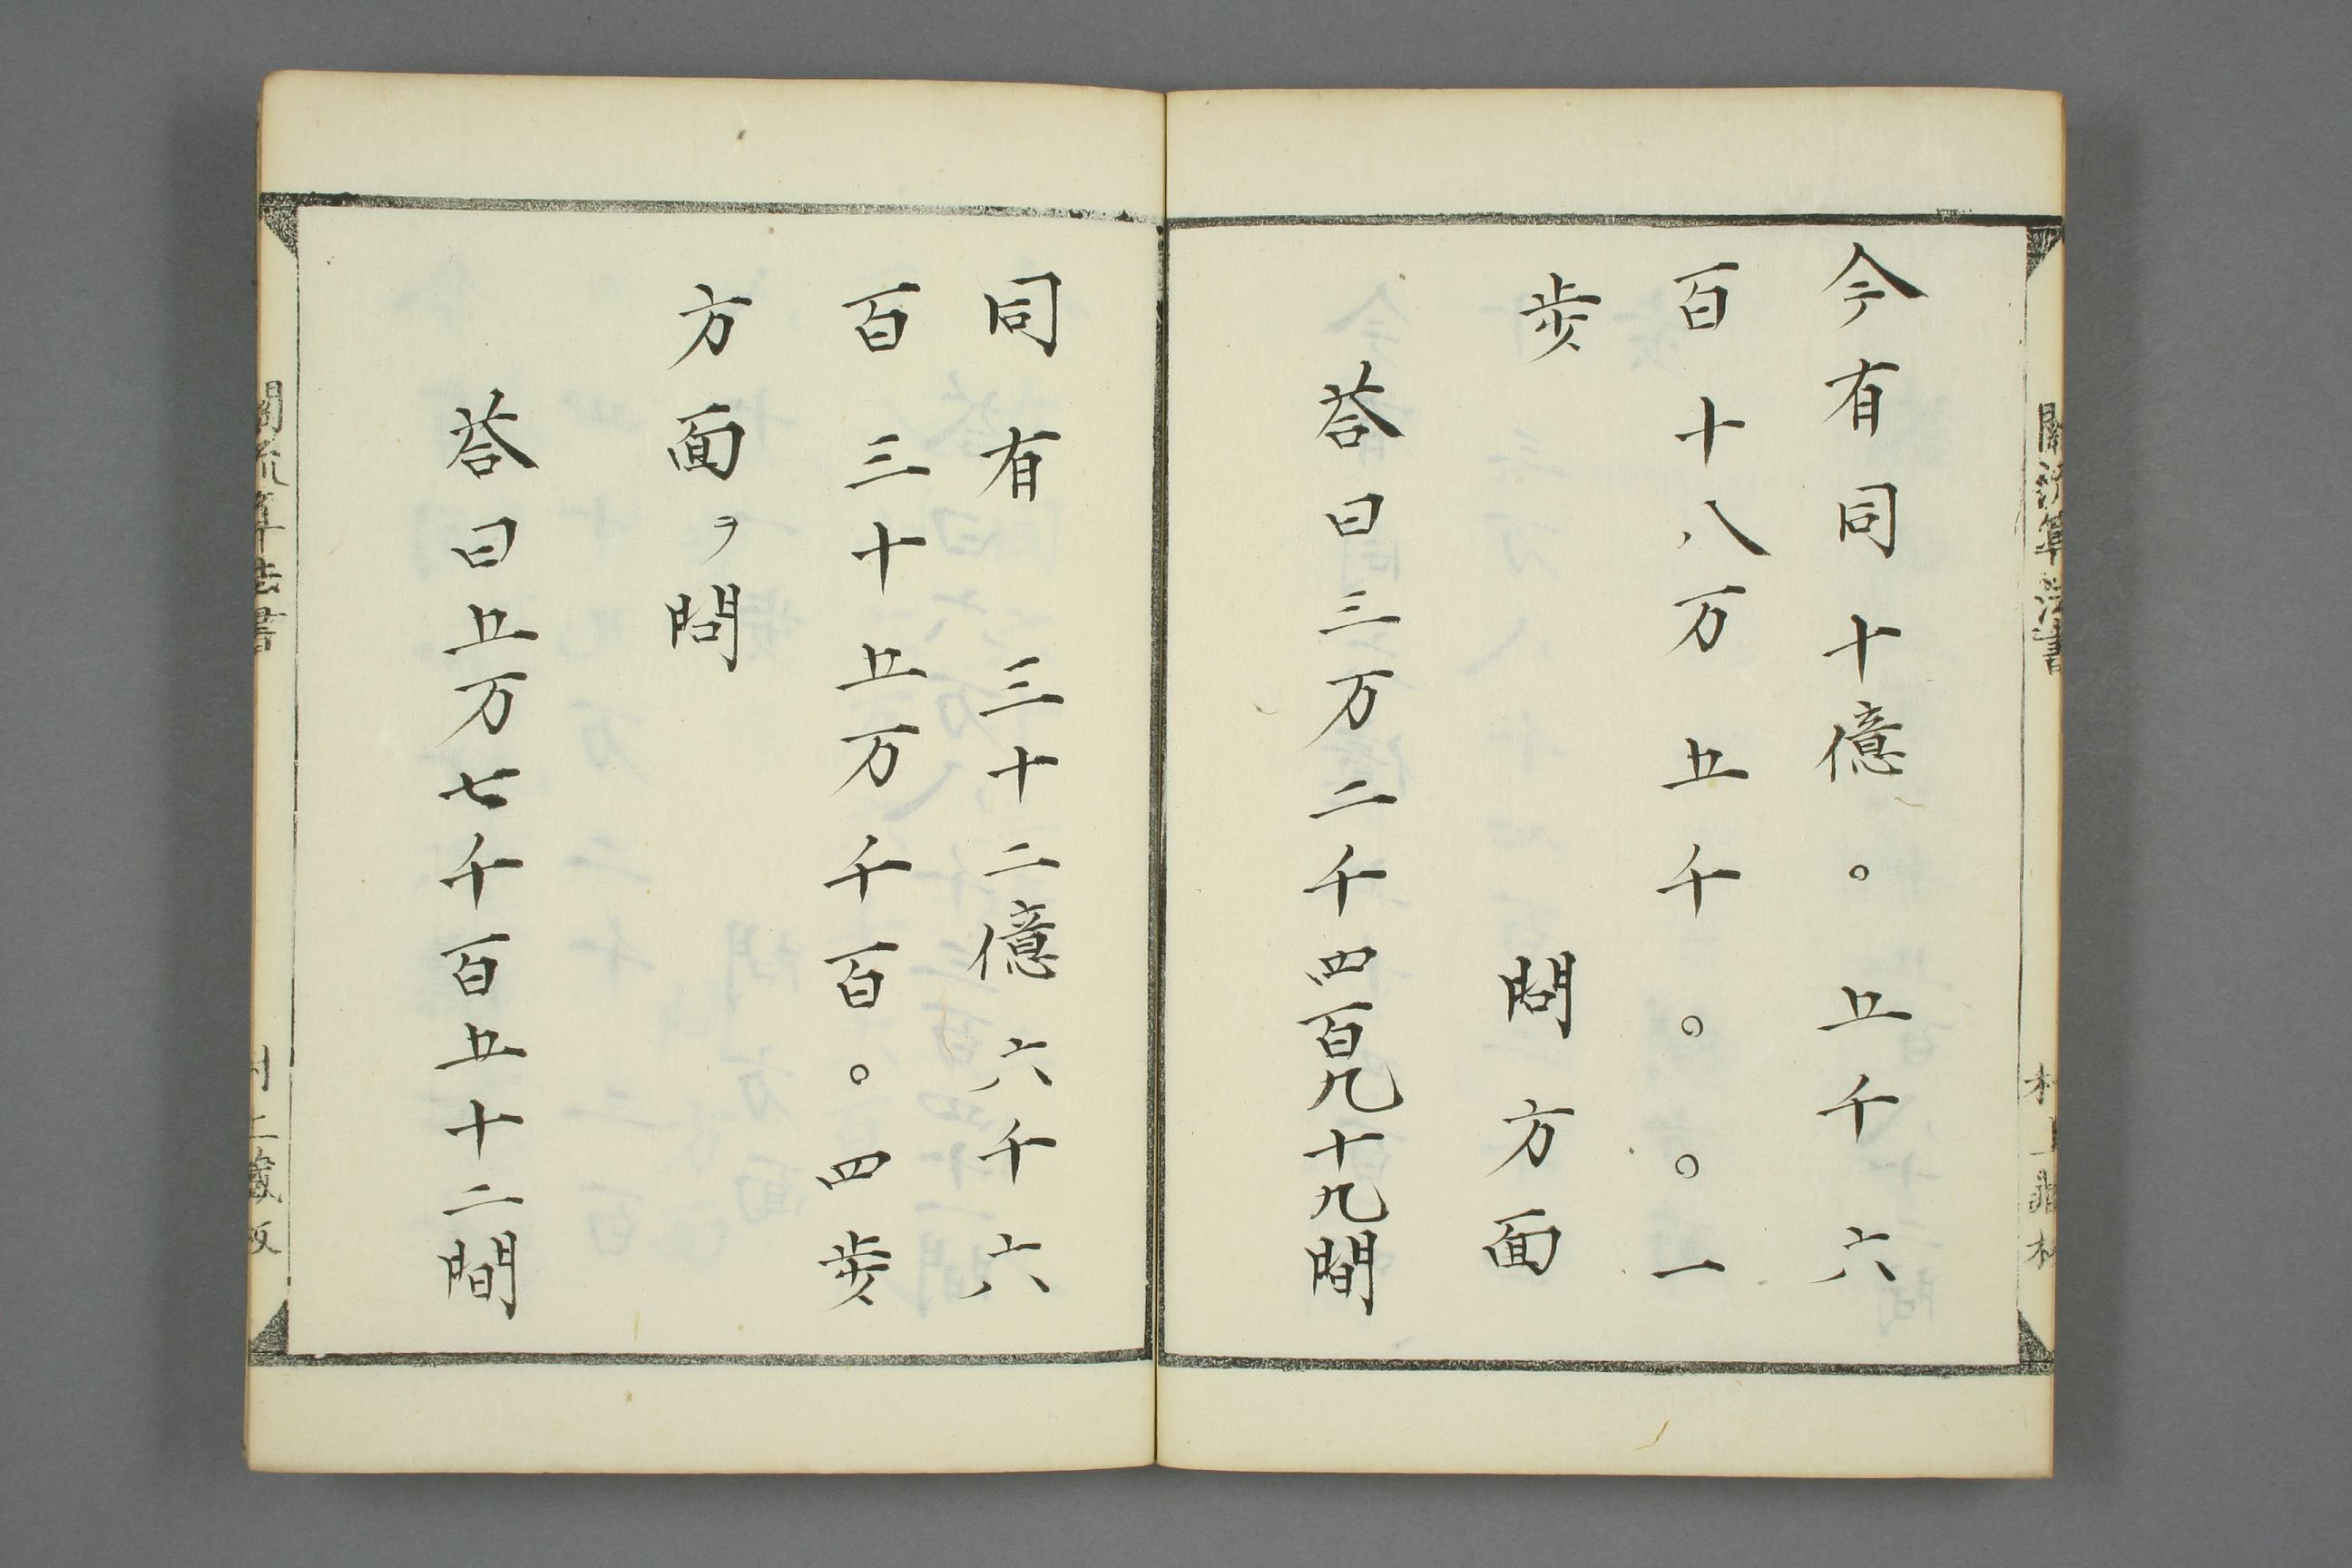 關流算法書
今有同十億〇五千六
百十八万五千〇〇一
歩 問方面
荅曰三万二千四百九十九間
同有三十二億六千六
百三十五万千百〇四歩
方面ヲ問
荅曰五万七千百五十二間
關流算法書